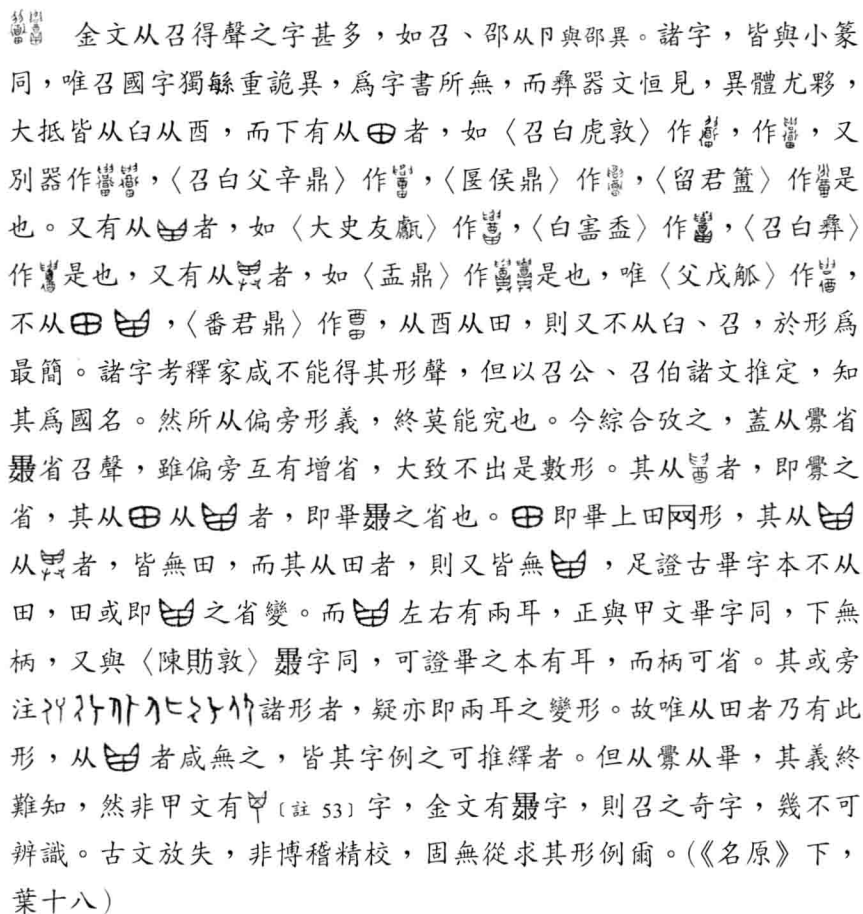 金文从召得聲之字甚多，如召、邵从卩與邵異。諸字，皆與小篆
同，唯召國字獨緐重詭異，爲字書所無，而彝器文恒見，異體尤夥，
大抵皆从臼从酉，而下有从者，如〈召白虎敦〉作，作，又
別器作，〈召白父辛鼎〉作，〈匽侯鼎〉作，〈留君簠〉作是
也。又有从者，如〈大史友甗〉作，〈白害盉〉作，〈召白彝〉
作是也，又有从者，如〈盂鼎〉作是也，唯〈父戊觚〉作，
不从，〈番君鼎〉作，从酉从田，則又不从臼、召，於形爲
最簡。諸字考釋家咸不能得其形聲，但以召公、召伯諸文推定，知
其爲國名。然所从偏旁形義，終莫能究也。今綜合攷之，蓋从釁省
省召聲，雖偏旁互有增省，大致不出是數形。其从者，即釁之
省，其从从者，即畢之省也。即畢上田网形，其从
从者，皆無田，而其从田者，則又皆無，足證古畢字本不从
田，田或即之省變。而左右有兩耳，正與甲文畢字同，下無
柄，又與〈陳昉敦〉字同，可證畢之本有耳，而柄可省。其或旁
注諸形者，疑亦即兩耳之變形。故唯从田者乃有此
形，从者咸無之，皆其字例之可推繹者。但从釁从畢，其義終
難知，然非甲文有〔註 53〕字，金文有字，則召之奇字，幾不可
辨識。古文放失，非博稽精校，固無從求其形例爾。(《名原》下，
葉十八)